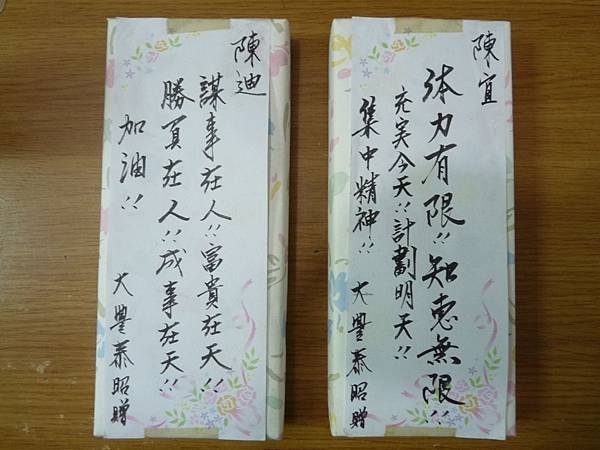 陳宜
体力有限!!知恵無限!!
充实今天!!計劃明天!!
集中精神!!
大豐泰昭贈
陳迪
謀事在人!!富貴在天!!
勝負在人!!成事在天!!
加油!!
大豐泰昭贈